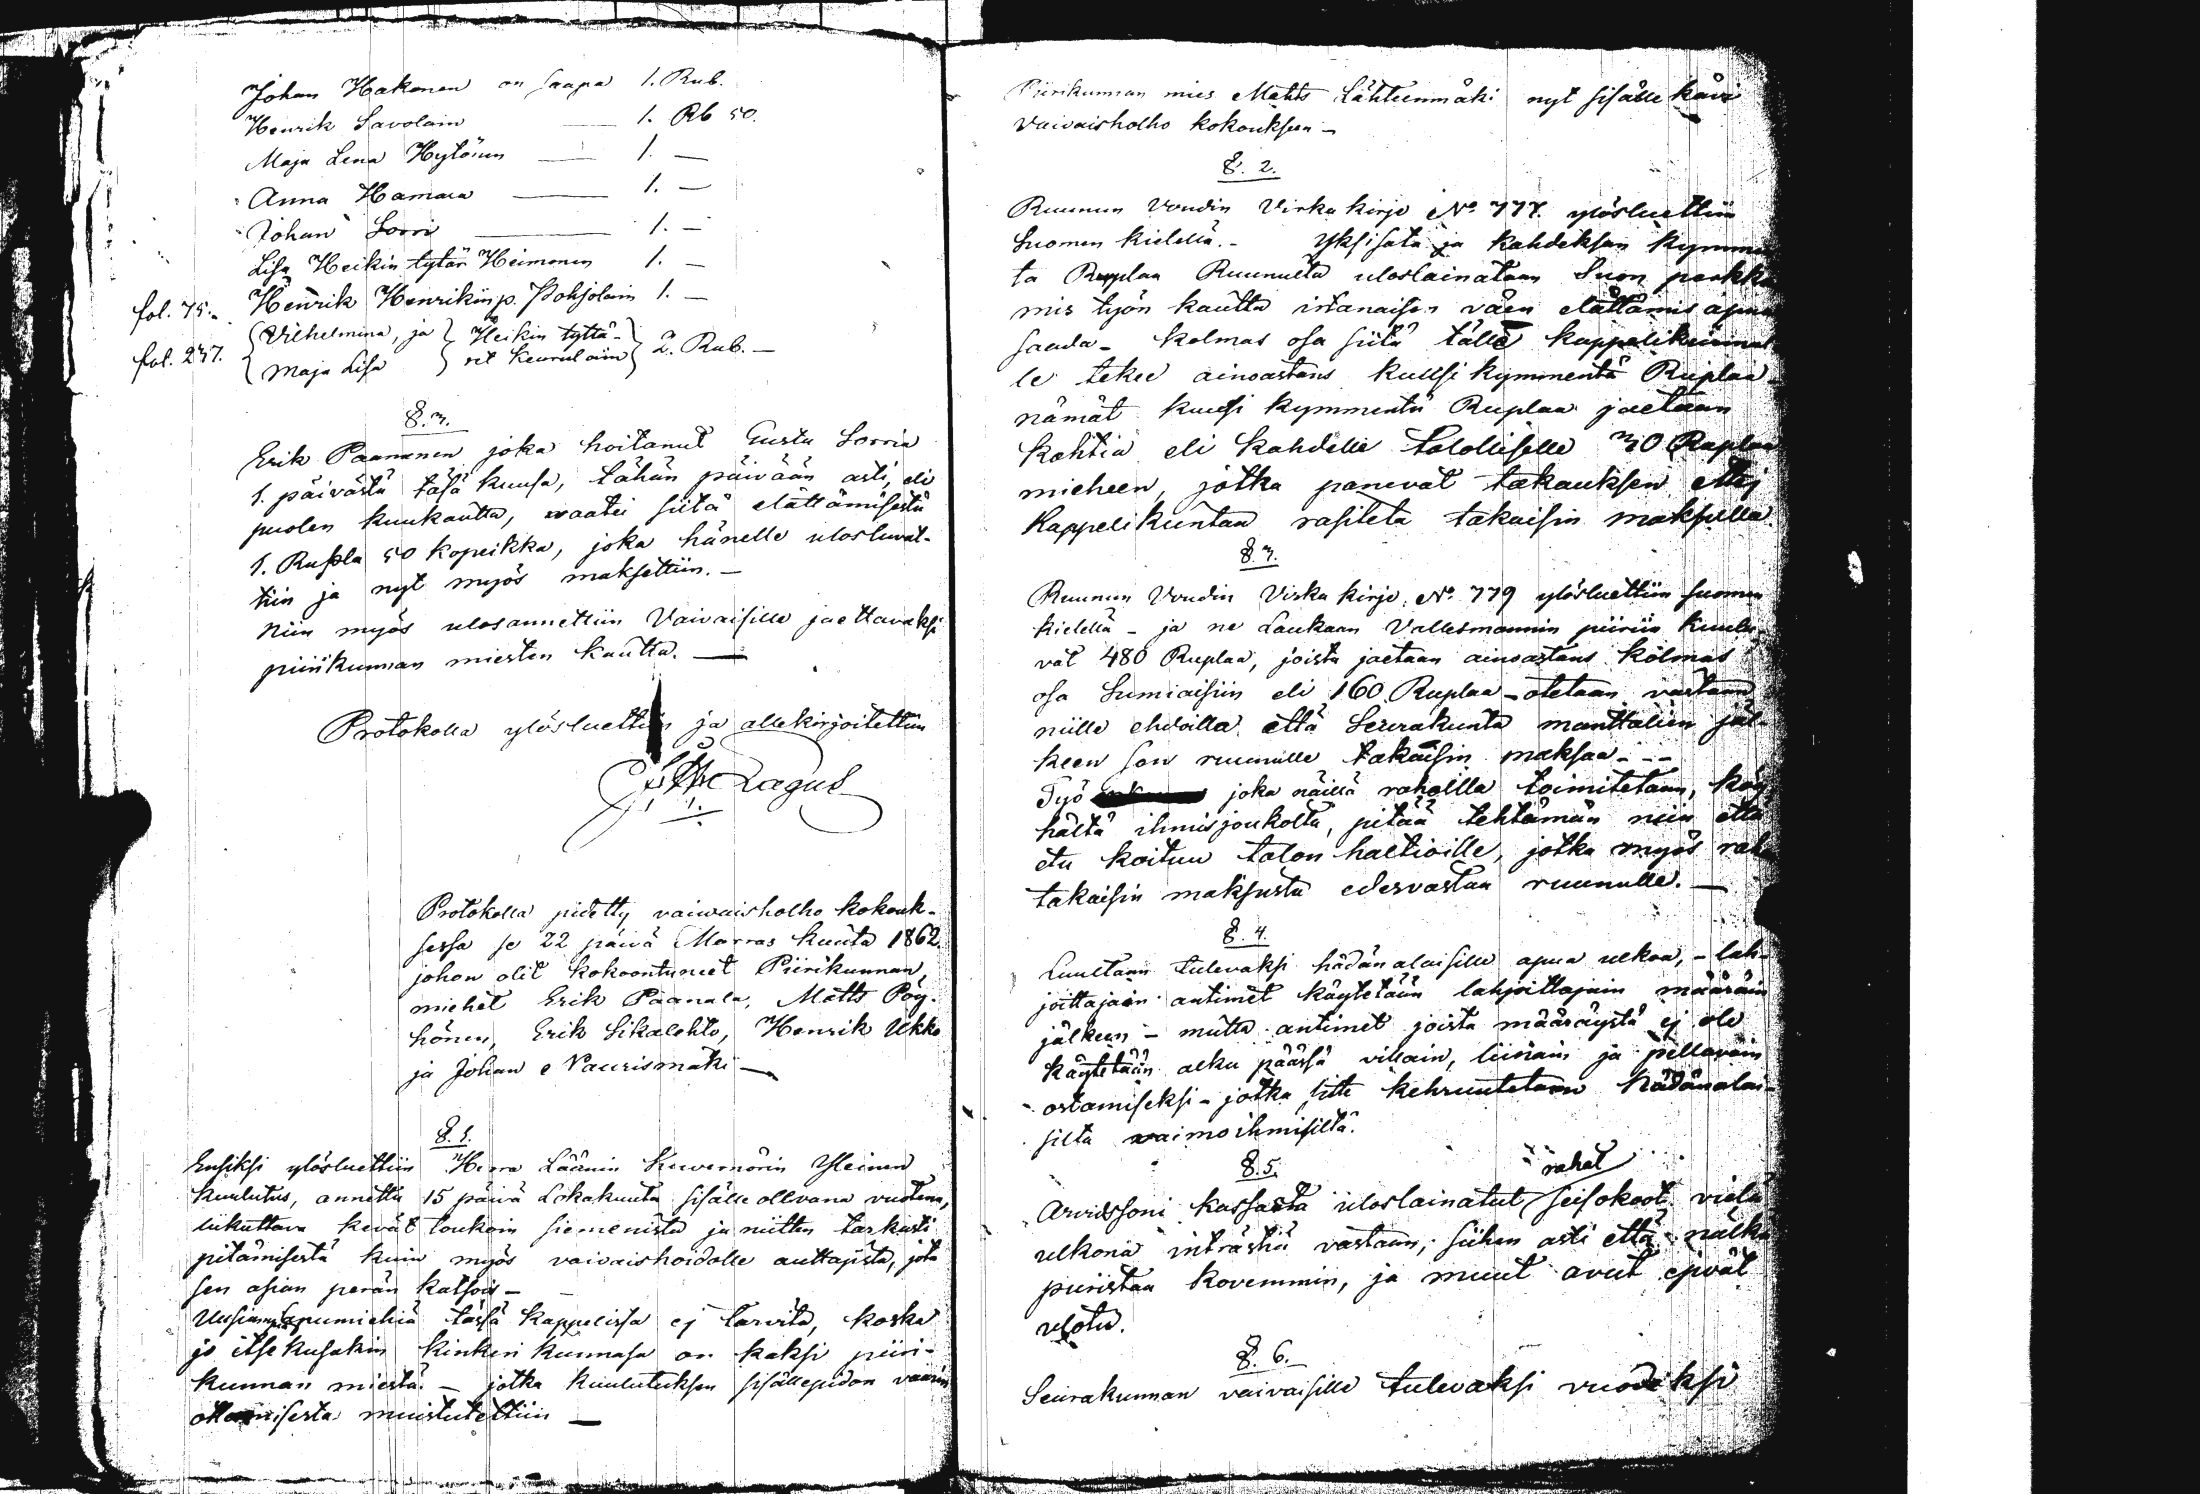 Johan Hakanen on saapa 1. Rub.
Henrik Savolain — 1. Rb 50.
Maja Lena Hytöinen — 1. —
Anna Hamara — 1. —
Johan Sorri — 1. —
Lisa Heikin tytär Heimonen 1. —
fol. 75. Henrik Henrikinp. Pohjolain 1. —
fol. 247. Vilhelmina, ja Maja Lisa Heikin tyttäret Keurulain 2. Rub. —
§. 3.
Erik Paananen joka hoitanut Gusta Sorria
1. päivästä täsä kuusa, tähän päivään asti, eli
puolen kuukautta, waatei siitä elättämisestä
1. Rupla 50 kopeikka, joka hänelle ulosluvat-
tiin ja nyt myös maksettiin. —
Niin myös ulosannettiin Vaivaisille jaettavaksi
piirikunnan miesten kautta. —
Protokolla ylösluettiin ja allekirjoitettiin
Lagus
Protokolla pidetty vaiwaisholho kokouk-
sessa se 22 päivä Marras kuuta 1862.
johon olit kokoontuneet Piirikunnan,
miehet Erik Paanala, Matts Pöy-
hönen, Erik Sikalehto, Henrik Ukko
ja Johan Naurismäki —
§. 1.
Ensiksi ylösluettiin Herra Läänin Kuvernörin Yleinen
kuulutus, annettu 15 päivä Lokakuuta sisälle ollevana vuotena,
liikuttava kevät toukoin siemenistä ja niitten tarkasti
pitämisestä kuin myös vaivaishoidolle auttajista, jota
sen asian perän katsois —
apumiehiä tässä kappelissa ej tarvita, koska
jo itsekusakin kinkeri kunnasa on kaksi piiri-
kunnan miestä. — jotka kuulutuksen sisällepidon vaarin
ottamisesta muistutettiin —
Piirikunnan mies Matts Lähteenmäki nyt sisälle kävi
Vaivaisholho kokoukseen —
§. 2.
Ruunun Voudin Virka kirje No 777. ylösluettiin
Suomen kielellä. — Yksisata ja kahdeksan kymmen
ta Ruplaa Ruunulta uloslainataan Suon perkka
mis työn kautta irtanaisen väen elättämis apua
saada — kolmas osa siitä tälle kappelikunnal
le tekee ainoastans kuusi kymmentä Ruplaa —
nämät kuusi kymmentä Ruplaa jaetaan
kahtia eli kahdelle talolliselle 30 Ruplaa
mieheen, jotka panevat takauksen ettej
Kappelikuntaa rasiteta takaisin maksulla.
§. 3.
Ruunun Voudin Virka kirje. No 779 ylösluettiin suomen
kielellä — ja ne Laukaan Vallesmannin piiriin kuulu-
vat 480 Ruplaa, joista jaetaan ainoastans kolmas
osa Sumiaisiin eli 160 Ruplaa — otetaan vastaan
niille ehdoilla, että Seurakunta manttalien jäl-
keen sen ruunulle takaisin maksaa - - -
Työ joka näillä raholla toimitetaan, köy-
hältä ihmisjoukolta, pitää tehtämän niin että
etu koituu talon haltioille, jotka myös raha
takaisin maksusta edesvastaa ruunulle. —
§. 4.
Luultaan tulevaksi hädänalaisille apua ulkoa, — lah-
joittajain antimet käytetään lahjoittajain määräin
jälkeen — mutta antimet joista määräystä ej ole
käytetään alku päässä villain, liinain ja pellavain
ostamiseksi — jotka sitte kehruutetaan hädänalai-
silta waimoihmisiltä.
§. 5.
Arvidssoni kassasta uloslainatut rahat seisokoot vielä
ulkona inträstiä vastaan, siihen asti että nälkä
puristaa kovemmin, ja muut avut ejvät
ulotu.
§. 6.
Seurakunnan vaivaisille tulevaksi vuodeksi